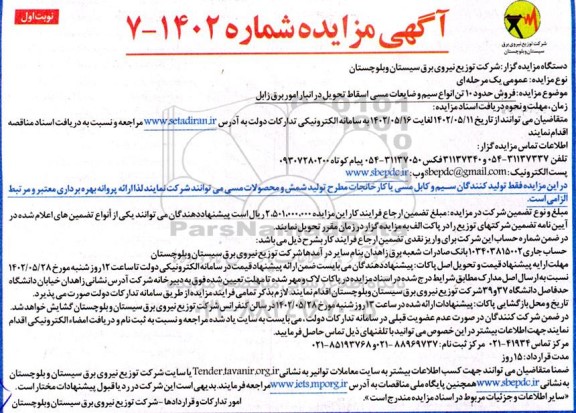 نوبت اول
آگهی مزایده شماره ۱۴۰۲-۷
شرکت توزیع نیروی برق
سیستان و بلوچستان
دستگاه مزایده گزار: شرکت توزیع نیروی برق سیستان و بلوچستان
نوع مزایده: عمومی یک مرحله ای
موضوع مزایده: فروش حدود ۱۰ تن انواع سیم و ضایعات مسی اسقاط تحویل در انبار امور برق زابل
زمان، مهلت و نحوه دریافت اسناد مزایده:
متقاضیان می توانند از تاریخ ۱۴۰۲/۰۵/۱۱ لغایت ۱۴۰۲/۰۵/۱۶ به سامانه الکترونیکی تدارکات دولت به آدرس www.setadiran.ir مراجعه و نسبت به دریافت اسناد مناقصه
اقدام نمایند
اطلاعات تماس مزایده گزار:
تلفن ۳۱۱۳۷۳۳۷-۰۵۴ و ۳۱۱۳۷۳۴۰-۰۵۴ فکس ۳۱۱۳۷۰۵۰-۰۵۴ پیام کوتاه ۰۹۳۰۷۲۸۰۲۰۰
پست الکترونیک: sbepdc@gmail.com وب: www.sbepdc.ir
در این مزایده فقط تولید کنندگان سیم و کابل مسی یا کارخانجات مطرح تولید شمش و محصولات مسی می توانند شرکت نمایند لذا ارائه پروانه بهره برداری معتبر و مرتبط
الزامی است.
مبلغ و نوع تضمین شرکت در مزایده: مبلغ تضمین ارجاع فرایند کار این مزایده ۲،۵۰۱،۰۰۰،۰۰۰ ریال است پیشنهاددهندگان می توانند یکی از انواع تضمین های اعلام شده در
آیین نامه تضمین شرکتهای توزیع را در پاکت الف به مزایده گزار در زمان مقرر تحویل نمایند.
در ضمن شماره حساب این شرکت برای واریز نقدی تضمین ارجاع فرایند کار بشرح ذیل می باشد:
حساب جاری ۰۱۰۳۴۰۳۸۱۵۰۰۲ بانک صادرات شعبه برق زاهدان بنام سایر درآمدها شرکت توزیع نیروی برق سیستان و بلوچستان
مهلت ارایه پیشنهاد قیمت و تحویل اصل پاکات: پیشنهاددهندگان می بایست ضمن ارائه پیشنهاد قیمت در سامانه الکترونیکی دولت تا ساعت ۱۲ روز شنبه مورخ ۱۴۰۲/۰۵/۲۸
نسبت به ارسال اصل مدارک مطابق شرایط درج شده در اسناد مزایده در پاکت لاک و مهر شده تا مهلت تعیین شده فوق به دبیرخانه شرکت آدرس نشانی زاهدان خیابان دانشگاه
حدفاصل دانشگاه ۳۷ و ۳۹ شرکت توزیع نیروی برق سیستان و بلوچستان اقدام نمایند لازم بذکر تمامی فرایند مزایده از طریق سامانه تدارکات دولت صورت می پذیرد.
تاریخ و محل بازگشایی پاکات: پیشنهادات ارائه شده در ساعت ۱۳ روز شنبه مورخ ۱۴۰۲/۰۵/۲۸ در سالن کنفرانس شرکت توزیع نیروی برق سیستان و بلوچستان گشایش خواهد شد.
در ضمن شرکت کنندگان در صورت عدم عضویت قبلی در سامانه تدارکات دولت می بایست به سایت یاد شده مراجعه و نسبت به ثبت نام و دریافت امضاء الکترونیکی اقدام
نمایند جهت اطلاعات بیشتر در این خصوص می توانید با تلفنهای ذیل تماس حاصل فرمایید.
مرکز تماس ۴۱۹۳۴-۰۲۱ مرکز ثبت نام: ۸۸۹۶۹۷۳۷-۰۲۱ و ۸۵۱۹۳۷۶۸-۰۲۱
مدت قرارداد: ۱۵ روز
ضمنا متقاضیان می توانند جهت کسب اطلاعات بیشتر به سایت معاملات توانیر به نشانی Tender.tavanir.org.ir یا سایت شرکت توزیع نیروی برق سیستان و بلوچستان
به نشانی www.sbepdc.ir و همچنین پایگاه ملی مناقصات به آدرس www.iets.mporg.ir مراجعه فرمایند. بدیهی است این شرکت در رد یا قبول پیشنهادات مختار است.
«سایر اطلاعات و جزئیات مربوط در اسناد مزایده مندرج است».
امور تدارکات و قراردادها - شرکت توزیع نیروی برق سیستان و بلوچستان